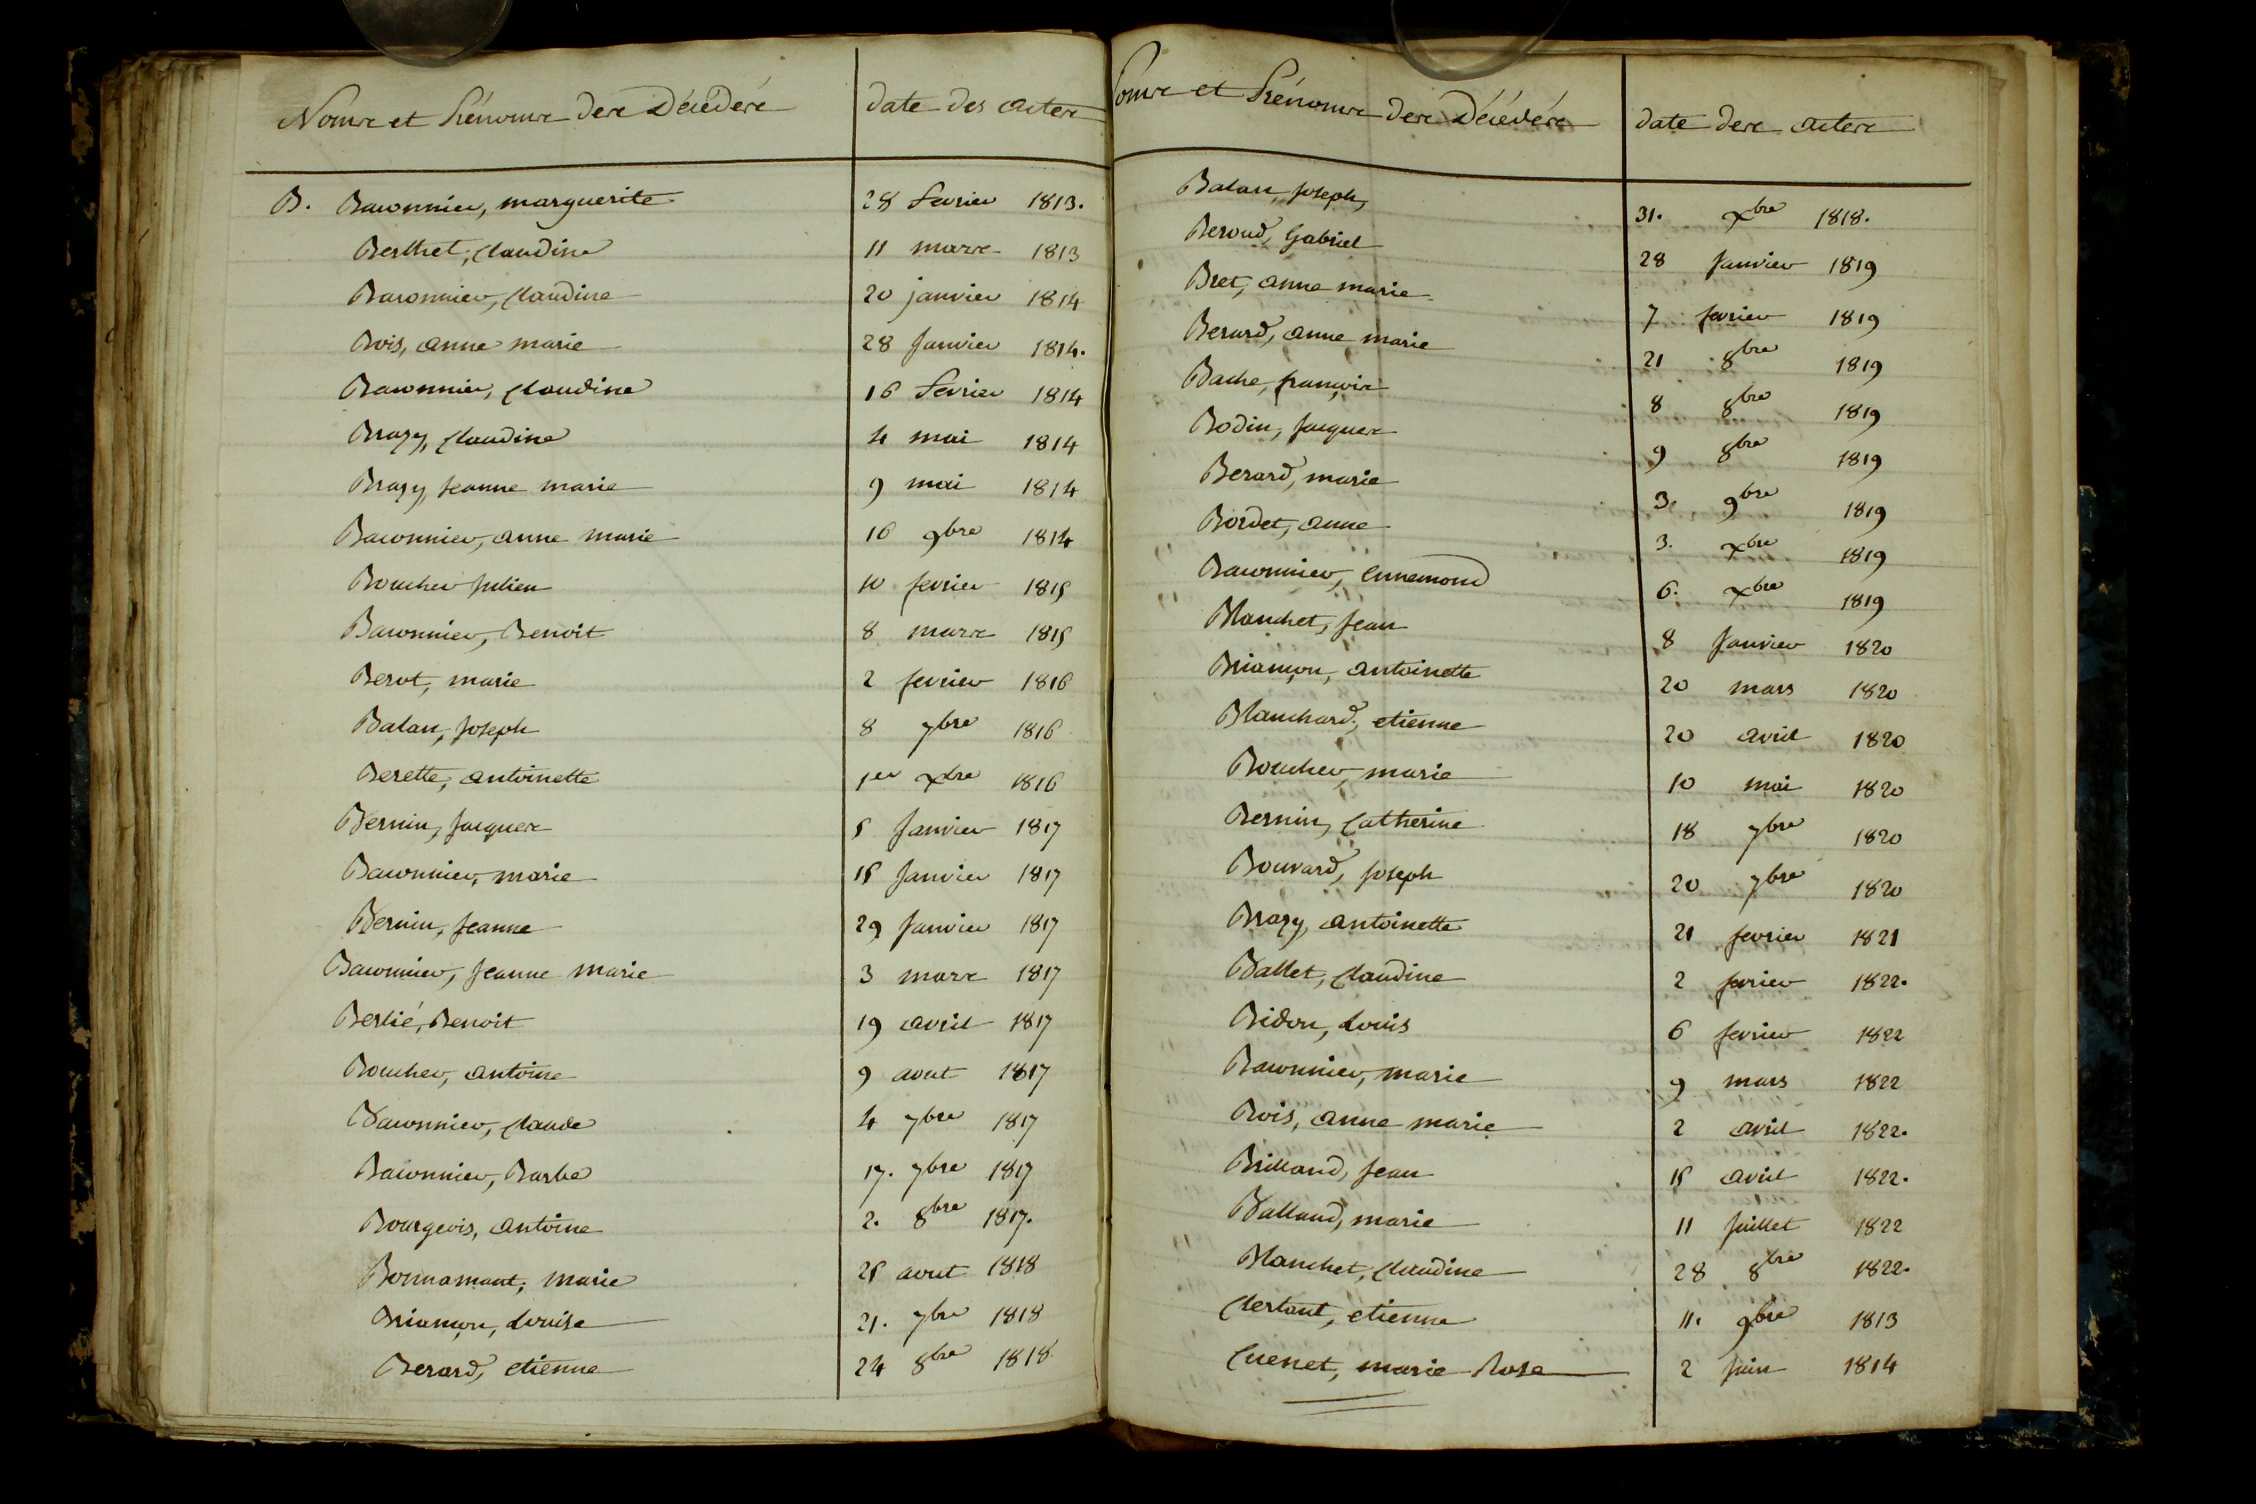 Noms et Prénoms des Décédés date des actes
B. Baronnier, marguerite 28 fevrier 1813.
Berthet, Claudine 11 mars 1813
Baronnier, Claudine 20 janvier 1814
Bois, anne marie 28 Janvier 1814.
Baronnier, Claudine 16 fevrier 1814
Brazy, Claudine 4 mai 1814
Brazy, Jeanne marie 9 mai 1814
Baronnier, anne marie 16 9bre 1814
Boucher Julien 10 fevrier 1815
Baronnier, Benoit 8 mars 1815
Berot, marie 2 fevrier 1816
Balan, Joseph 8 7bre 1816
Berette, antoinette 1er Xbre 1816
Bernin, Jacques 5 Janvier 1817
Baronnier, marie 15 Janvier 1817
Bernin, Jeanne 29 Janvier 1817
Baronnier, Jeanne marie 3 mars 1817
Berlié, Benoit 19 avril 1817
Boucher, antoine 9 aout 1817
Baronnier, Claude 4 7bre 1817
Baronnier, Barbe 17. 7bre 1817
Bourgeois, antoine 2. 8bre 1817.
Bonnamant, marie 25 aout 1818
Briançon, Louise 21. 7bre 1818
Berard, etienne 24 8bre 1818
Noms et Prénoms des Décédés date des actes
Balan, Joseph, 31. Xbre 1818.
Beroud, Gabriel 28 Janvier 1819
Bret, anne marie 7 fevrier 1819
Berard, anne marie 21 8bre 1819
Bache, françois 8 8bre 1819
Bodin, Jacques 9 8bre 1819
Berard, marie 3. 9bre 1819
Bordet, anne 3. Xbre 1819
Baronnier, Ennemond 6. Xbre 1819
Blanchet, Jean 8 Janvier 1820
Briançon, antoinette 20 mars 1820
Blanchard, etienne 20 avril 1820
Boucher, marie 10 mai 1820
Bernin, Catherine 18 7bre 1820
Bouvard, Joseph 20 7bre 1820
Brazy, antoinette 21 fevrier 1821
Ballet, Claudine 2 fevrier 1822.
Bidon, Louis 6 fevrier 1822
Baronnier, marie 9 mars 1822
Bois, anne marie 2 avril 1822.
Brilland, Jean 15 avril 1822.
Balland, marie 11 Juillet 1822
Blanchet, Claudine 28 8bre 1822.
Clertant, etienne 11. 9bre 1813
Cuenet, marie Rose 2 Juin 1814